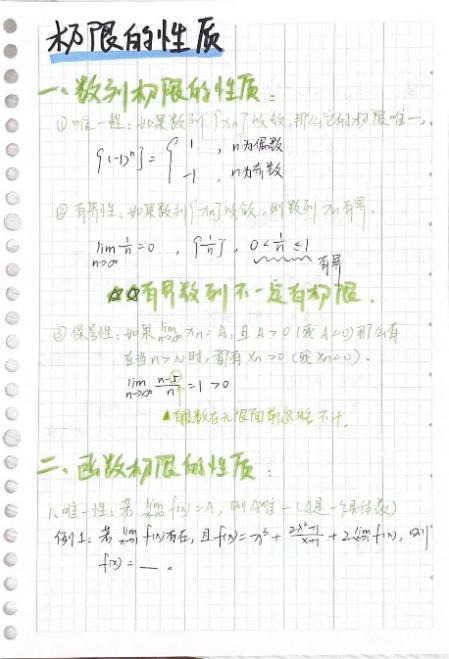 极限的性质
一、数列极限的性质：
① 唯一性：如果数列{xn}收敛,那么它的极限唯一。
{(-1)ⁿ} = { 1 , n为偶数
-1 , n为奇数
② 有界性：如果数列{xn}收敛,则数列xn有界.
lim n→∞ 1/n = 0 , {1/n} , 0 < 1/n ≤ 1
有界
☆☆有界数列不一定有极限.
③ 保号性：如果 lim n→∞ xn = A, 且 A>0 (或 A<0) 那么有
在当 n>N 时, 都有 xn>0 (或 xn<0).
lim n→∞ (n-5)/n = 1 > 0
▲有限数在无限面前忽略不计.
二、函数极限的性质：
1、唯一性：若 lim f(x)=A, 则A唯一 (A是一个具体数)
例1：若 lim x→1 f(x)存在, 且 f(x) = x³ + (2x²+1)/(x+1) + 2 lim x→1 f(x), 则
f(x) = __ 。